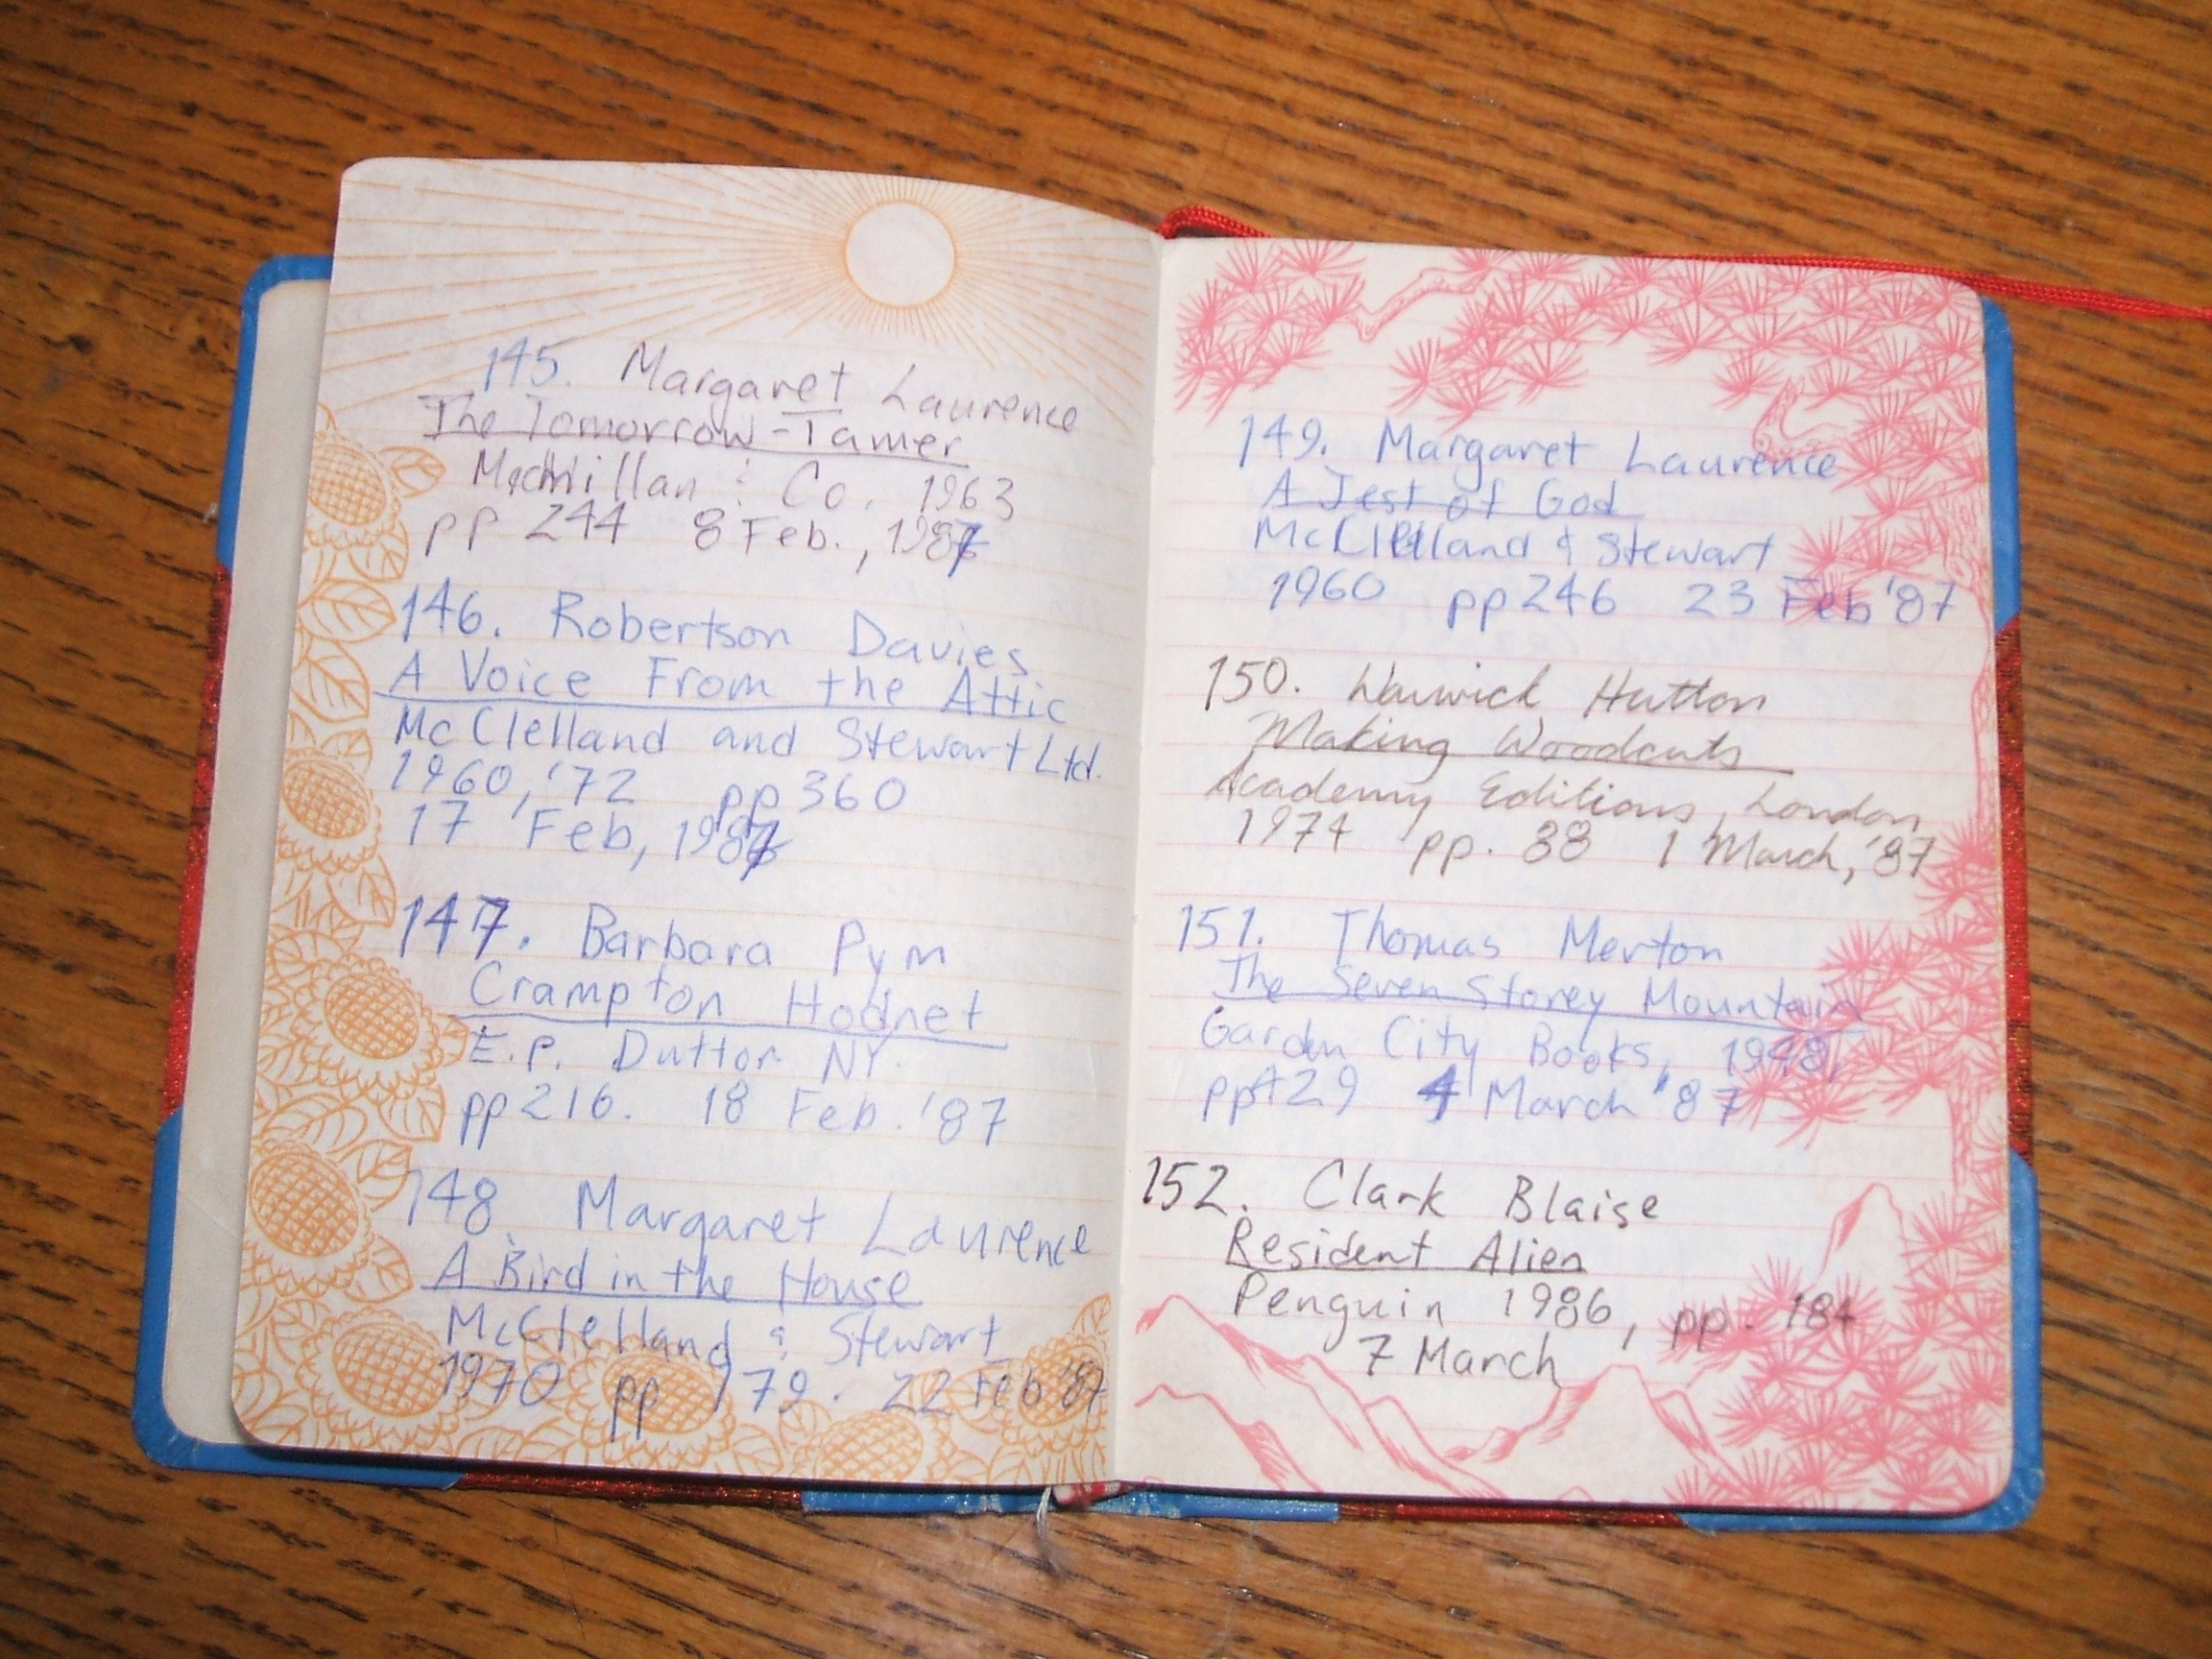 145. Margaret Laurence
The Tomorrow-Tamer
Macmillan & Co. 1963
pp 244 8 Feb., 1987
146. Robertson Davies
A Voice From the Attic
McClelland and Stewart Ltd.
1960, '72 pp 360
17 Feb, 1987
147. Barbara Pym
Crampton Hodnet
E.P. Dutton NY.
pp 216. 18 Feb. '87
148. Margaret Laurence
A Bird in the House
McClelland & Stewart
1970 pp 179. 22 Feb '87
149. Margaret Laurence
A Jest of God
McClelland & Stewart
1960 pp 246 23 Feb '87
150. Warwick Hutton
Making Woodcuts
Academy Editions, London
1974 pp. 88 1 March, '87
151. Thomas Merton
The Seven Storey Mountain
Garden City Books, 1948,
pp 429 4 March '87
152. Clark Blaise
Resident Alien
Penguin 1986, pp. 184
7 March